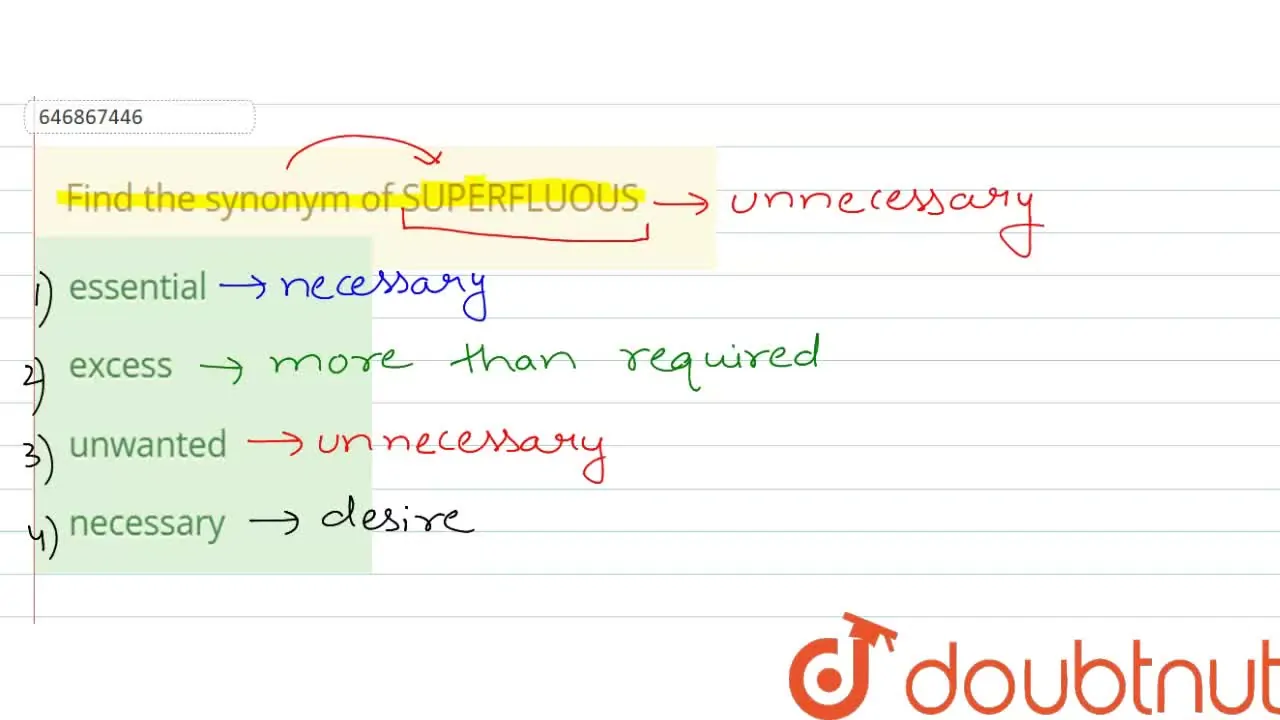 646867446
Find the synonym of SUPERFLUOUS → unnecessary
1) essential → necessary
2) excess → more than required
3) unwanted → unnecessary
4) necessary → desire
doubtnut